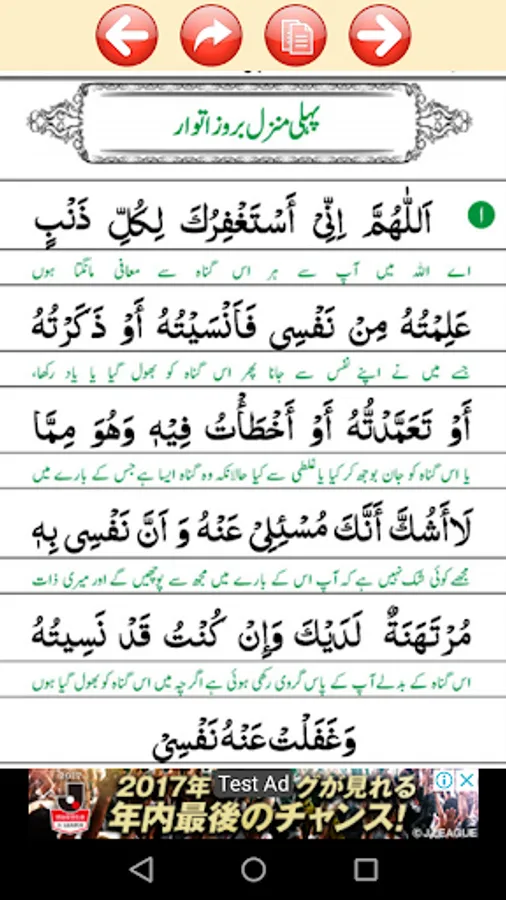 پہلی منزل بروز اتوار
۱
اَللّٰهُمَّ اِنِّيْ أَسْتَغْفِرُكَ لِكُلِّ ذَنْۢبٍ
اے اللہ میں آپ سے ہر اس گناہ سے معافی مانگتا ہوں
عَلِمْتُهُ مِنْ نَفْسِي فَاَنْسَيْتُهُ أَوْ ذَكَرْتُهُ
جسے میں نے اپنے نفس سے جانا پھر اس گناہ کو بھول گیا یا یاد رکھا،
أَوْ تَعَمَّدْتُّهُ أَوْ أَخْطَأْتُ فِيْهِ وَهُوَ مِمَّا
یا اس گناہ کو جان بوجھ کر کیا یا غلطی سے کیا حالانکہ وہ گناہ ایسا ہے جس کے بارے میں
لَاأَشُكُّ أَنَّكَ مُسْئِلِيْ عَنْهُ وَ اَنَّ نَفْسِي بِهٖ
مجھے کوئی شک نہیں ہے کہ آپ اس کے بارے میں مجھ سے پوچھیں گے اور میری ذات
مُرْتَهَنَةٌ لَدَيْكَ وَإِنْ كُنْتُ قَدْ نَسِيتُهُ
اس گناہ کے بدلے آپ کے پاس گروی رکھی ہوئی ہے اگرچہ میں اس گناہ کو بھول گیا ہوں
وَغَفَلَتْ عَنْهُ نَفْسِيْ
2017年 Test Ad グが見れる
年内最後のチャンス!
©J.LEAGUE